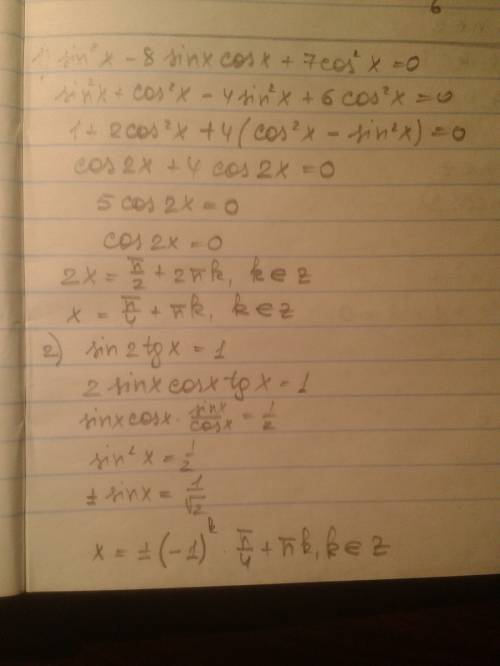 6
1) sin² x - 8 sinx cosx + 7cos² x = 0
sin²x + cos²x - 4 sin²x + 6 cos²x = 0
1 + 2cos²x + 4 (cos²x - sin²x) = 0
cos 2x + 4 cos 2x = 0
5 cos 2x = 0
cos 2x = 0
2x = π/2 + 2πk, k ∈ z
x = π/4 + πk, k ∈ z
2) sin 2 tg x = 1
2 sinx cosx tg x = 1
sinx cosx · sinx/cosx = 1/2
sin² x = 1/2
± sin x = 1/√2
x = ± (-1)^k · π/4 + πk, k ∈ z